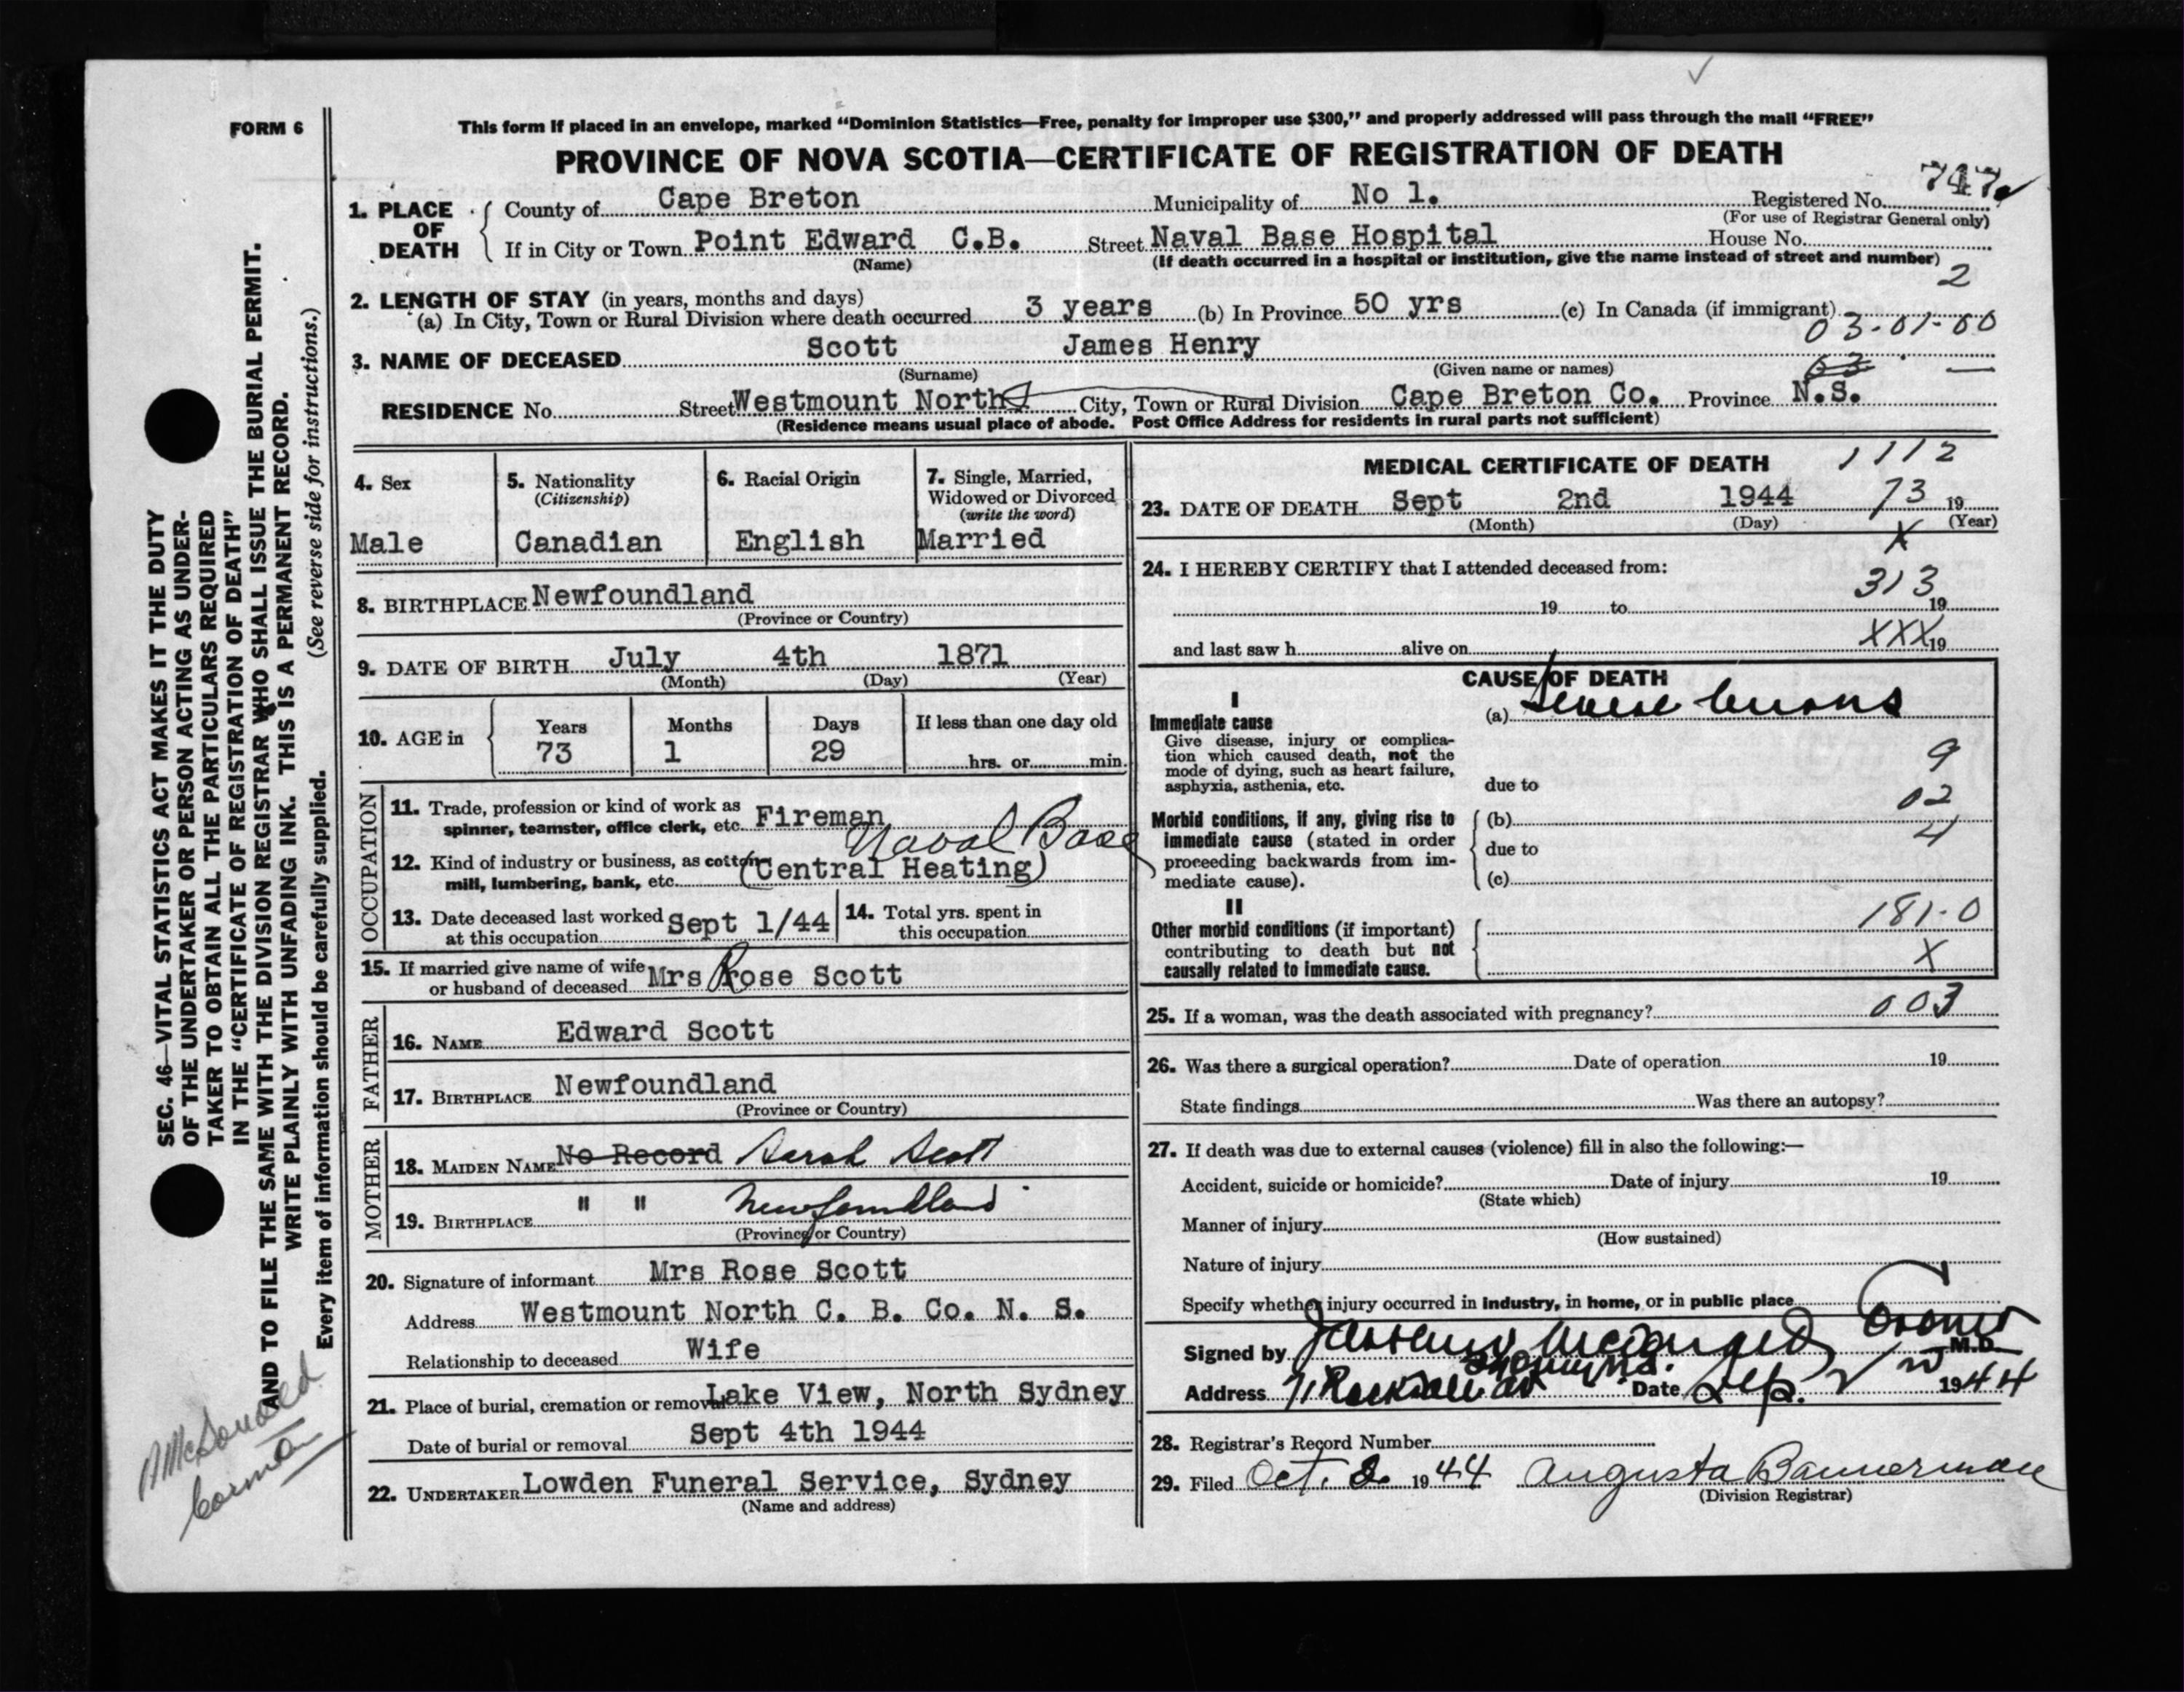 FORM 6
This form if placed in an envelope, marked “Dominion Statistics—Free, penalty for improper use $300,” and properly addressed will pass through the mail “FREE”
PROVINCE OF NOVA SCOTIA—CERTIFICATE OF REGISTRATION OF DEATH
747
1. PLACE OF DEATH
County of Cape Breton Municipality of No 1. Registered No.
(For use of Registrar General only)
If in City or Town Point Edward C.B. Street Naval Base Hospital House No.
(Name) (If death occurred in a hospital or institution, give the name instead of street and number)
2
2. LENGTH OF STAY (in years, months and days)
(a) In City, Town or Rural Division where death occurred 3 years (b) In Province 50 yrs (c) In Canada (if immigrant)
03-01-00
3. NAME OF DECEASED Scott James Henry
(Surname) (Given name or names)
63 —
RESIDENCE No. Street Westmount North City, Town or Rural Division Cape Breton Co. Province N.S.
(Residence means usual place of abode. Post Office Address for residents in rural parts not sufficient)
4. Sex
Male
5. Nationality
(Citizenship)
Canadian
6. Racial Origin
English
7. Single, Married,
Widowed or Divorced
(write the word)
Married
8. BIRTHPLACE Newfoundland
(Province or Country)
9. DATE OF BIRTH July 4th 1871
(Month) (Day) (Year)
10. AGE in
Years Months Days If less than one day old
73 1 29 hrs. or min.
OCCUPATION
11. Trade, profession or kind of work as
spinner, teamster, office clerk, etc. Fireman
Naval Base
12. Kind of industry or business, as cotton
mill, lumbering, bank, etc. (Central Heating)
13. Date deceased last worked
at this occupation Sept 1/44
14. Total yrs. spent in
this occupation
15. If married give name of wife
or husband of deceased Mrs Rose Scott
FATHER
16. NAME Edward Scott
17. BIRTHPLACE Newfoundland
(Province or Country)
MOTHER
18. MAIDEN NAME No Record Sarah Scott
19. BIRTHPLACE " " Newfoundland
(Province or Country)
20. Signature of informant Mrs Rose Scott
Address Westmount North C. B. Co. N. S.
Relationship to deceased Wife
21. Place of burial, cremation or removal Lake View, North Sydney
Date of burial or removal Sept 4th 1944
22. UNDERTAKER Lowden Funeral Service, Sydney
(Name and address)
MEDICAL CERTIFICATE OF DEATH 1112
23. DATE OF DEATH Sept 2nd 1944 73 19
(Month) (Day) (Year)
X
24. I HEREBY CERTIFY that I attended deceased from:
313
19 to 19
and last saw h alive on XXX 19
CAUSE OF DEATH
I
Immediate cause
Give disease, injury or complica-
tion which caused death, not the
mode of dying, such as heart failure,
asphyxia, asthenia, etc.
(a) Severe burns
9
due to
02
Morbid conditions, if any, giving rise to
immediate cause (stated in order
proceeding backwards from im-
mediate cause).
(b)
4
due to
(c)
II
Other morbid conditions (if important)
contributing to death but not
causally related to immediate cause.
181-0
X
25. If a woman, was the death associated with pregnancy? 003
26. Was there a surgical operation? Date of operation 19
State findings Was there an autopsy?
27. If death was due to external causes (violence) fill in also the following:—
Accident, suicide or homicide? Date of injury 19
(State which)
Manner of injury
(How sustained)
Nature of injury
Specify whether injury occurred in industry, in home, or in public place
Signed by McDonald Coroner M.D.
Address Date Sep. 2 1944
28. Registrar's Record Number
29. Filed Oct. 2 1944 Augusta Bannerman
(Division Registrar)
SEC. 46—VITAL STATISTICS ACT MAKES IT THE DUTY
OF THE UNDERTAKER OR PERSON ACTING AS UNDER-
TAKER TO OBTAIN ALL THE PARTICULARS REQUIRED
IN THE “CERTIFICATE OF REGISTRATION OF DEATH”
AND TO FILE THE SAME WITH THE DIVISION REGISTRAR WHO SHALL ISSUE THE BURIAL PERMIT.
WRITE PLAINLY WITH UNFADING INK. THIS IS A PERMANENT RECORD.
Every item of information should be carefully supplied. (See reverse side for instructions.)
A McDonald